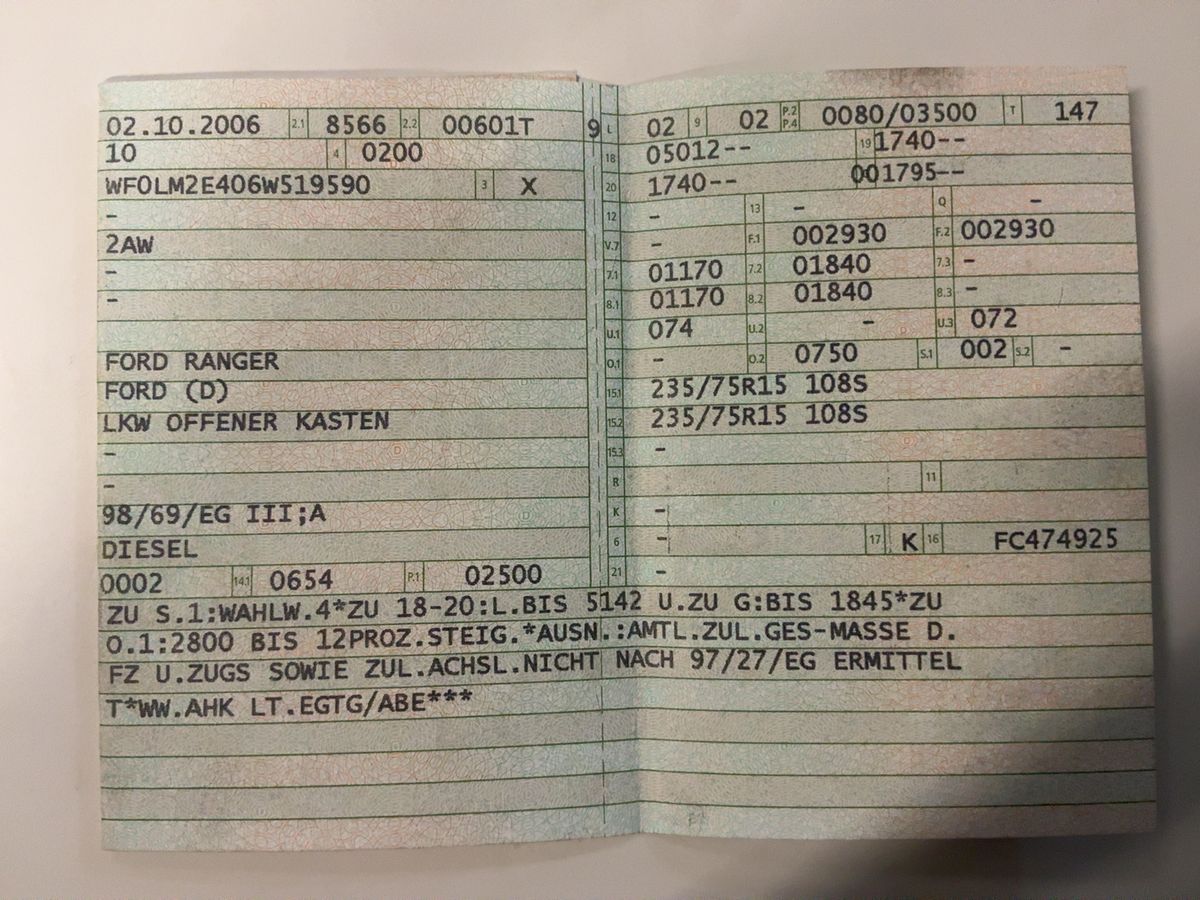 02.10.2006 2.1 8566 2.2 00601T 9 L 02 9 02 P.2 P.4 0080/03500 T 147
10 4 0200 18 05012-- 19 1740--
WF0LM2E406W519590 3 X 20 1740-- 001795--
- 12 - 13 - Q -
2AW V.7 - F.1 002930 F.2 002930
- 7.1 01170 7.2 01840 7.3 -
- 8.1 01170 8.2 01840 8.3 -
U.1 074 U.2 - U.3 072
FORD RANGER O.1 - O.2 0750 S.1 002 S.2 -
FORD (D) 15.1 235/75R15 108S
LKW OFFENER KASTEN 15.2 235/75R15 108S
- 15.3 -
- R 11
98/69/EG III;A K -
DIESEL 6 - 17 K 16 FC474925
0002 14.1 0654 P.1 02500 21 -
ZU S.1:WAHLW.4*ZU 18-20:L.BIS 5142 U.ZU G:BIS 1845*ZU
O.1:2800 BIS 12PROZ.STEIG.*AUSN.:AMTL.ZUL.GES-MASSE D.
FZ U.ZUGS SOWIE ZUL.ACHSL.NICHT NACH 97/27/EG ERMITTEL
T*WW.AHK LT.EGTG/ABE***